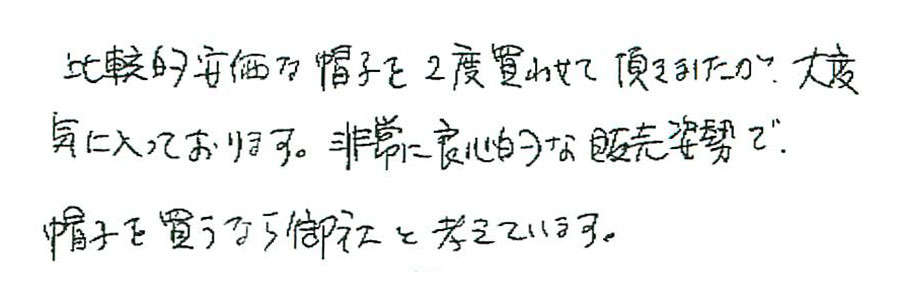 比較的安価な帽子を2度買わせて頂きましたが、大変
気に入っております。非常に良心的な販売姿勢で、
帽子を買うなら御社と考えています。